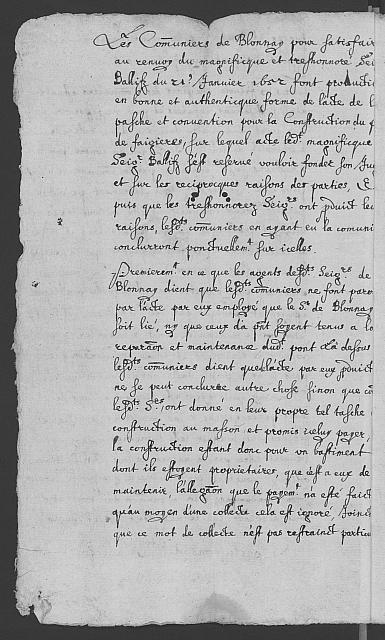 Les Comuniers de Blonnay pour satisfair
au renvoy du magnificque et treshonnoré Sei
Ballifz du 21e Janvier 1652 font producti
en bonne et authenticque forme de lacte de l
pasche et convention pour la Construction du p
de faigieres, sur lequel acte ledt magnificque
Seigr Ballifz sest reservé vouloir fonder son Ju
et sur les reciprocques raisons des parties, E
puis que les treshonnorez Seigrs ont pduict le
raisons, lesdts comuniers en ayant eu la comuni
conclurront ponctuellemt sur icelles.
Premieremt en ce que les agents desdts Seigrs de
Blonnay dient que lesdts comuniers, ne font paro
par lacte par eux employé que le Sr de Blonnay
soit lié, ny que ceux da pnt soyent tenus a la
reparaon et maintenance dudt pont Cla dessus
lesdts comuniers dient que lacte par eux pduict
ne se peut conclurre autre chose sinon que co
lesdts Srs, ont donné en leur propre tel tasche
construction au masson et promis iceluy payer,
la construction estant donc pour un bastiment
dont ils estoyent proprietaires, que cest a eux de
maintenir, lallegaon que le payemt na esté faict
quau moyen dune collecte cela est ignoré, Joinct
que ce mot de collecte nest pas restrainct particu